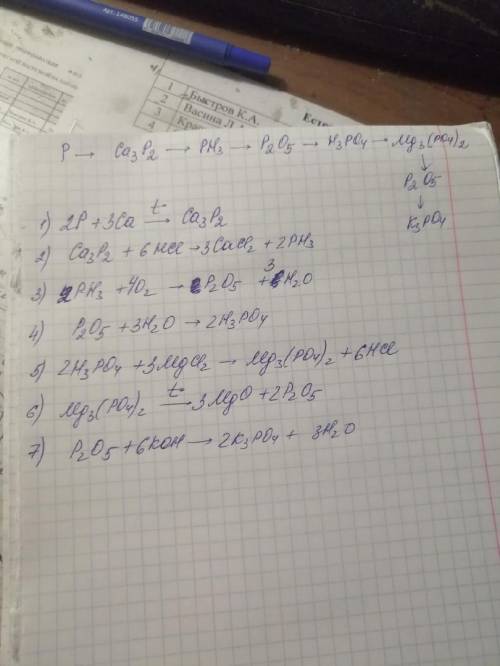 Арт. 148055
1 Быстров К.А.
2 Васина Л.
3
4
P → Ca₃P₂ → PH₃ → P₂O₅ → H₃PO₄ → Mg₃(PO₄)₂
↓
P₂O₅
↓
K₃PO₄
1) 2P + 3Ca →t Ca₃P₂
2) Ca₃P₂ + 6HCl → 3CaCl₂ + 2PH₃
3) 2PH₃ + 4O₂ → P₂O₅ + 3H₂O
4) P₂O₅ + 3H₂O → 2H₃PO₄
5) 2H₃PO₄ + 3MgCl₂ → Mg₃(PO₄)₂ + 6HCl
6) Mg₃(PO₄)₂ →t 3MgO + 2P₂O₅
7) P₂O₅ + 6KOH → 2K₃PO₄ + 3H₂O